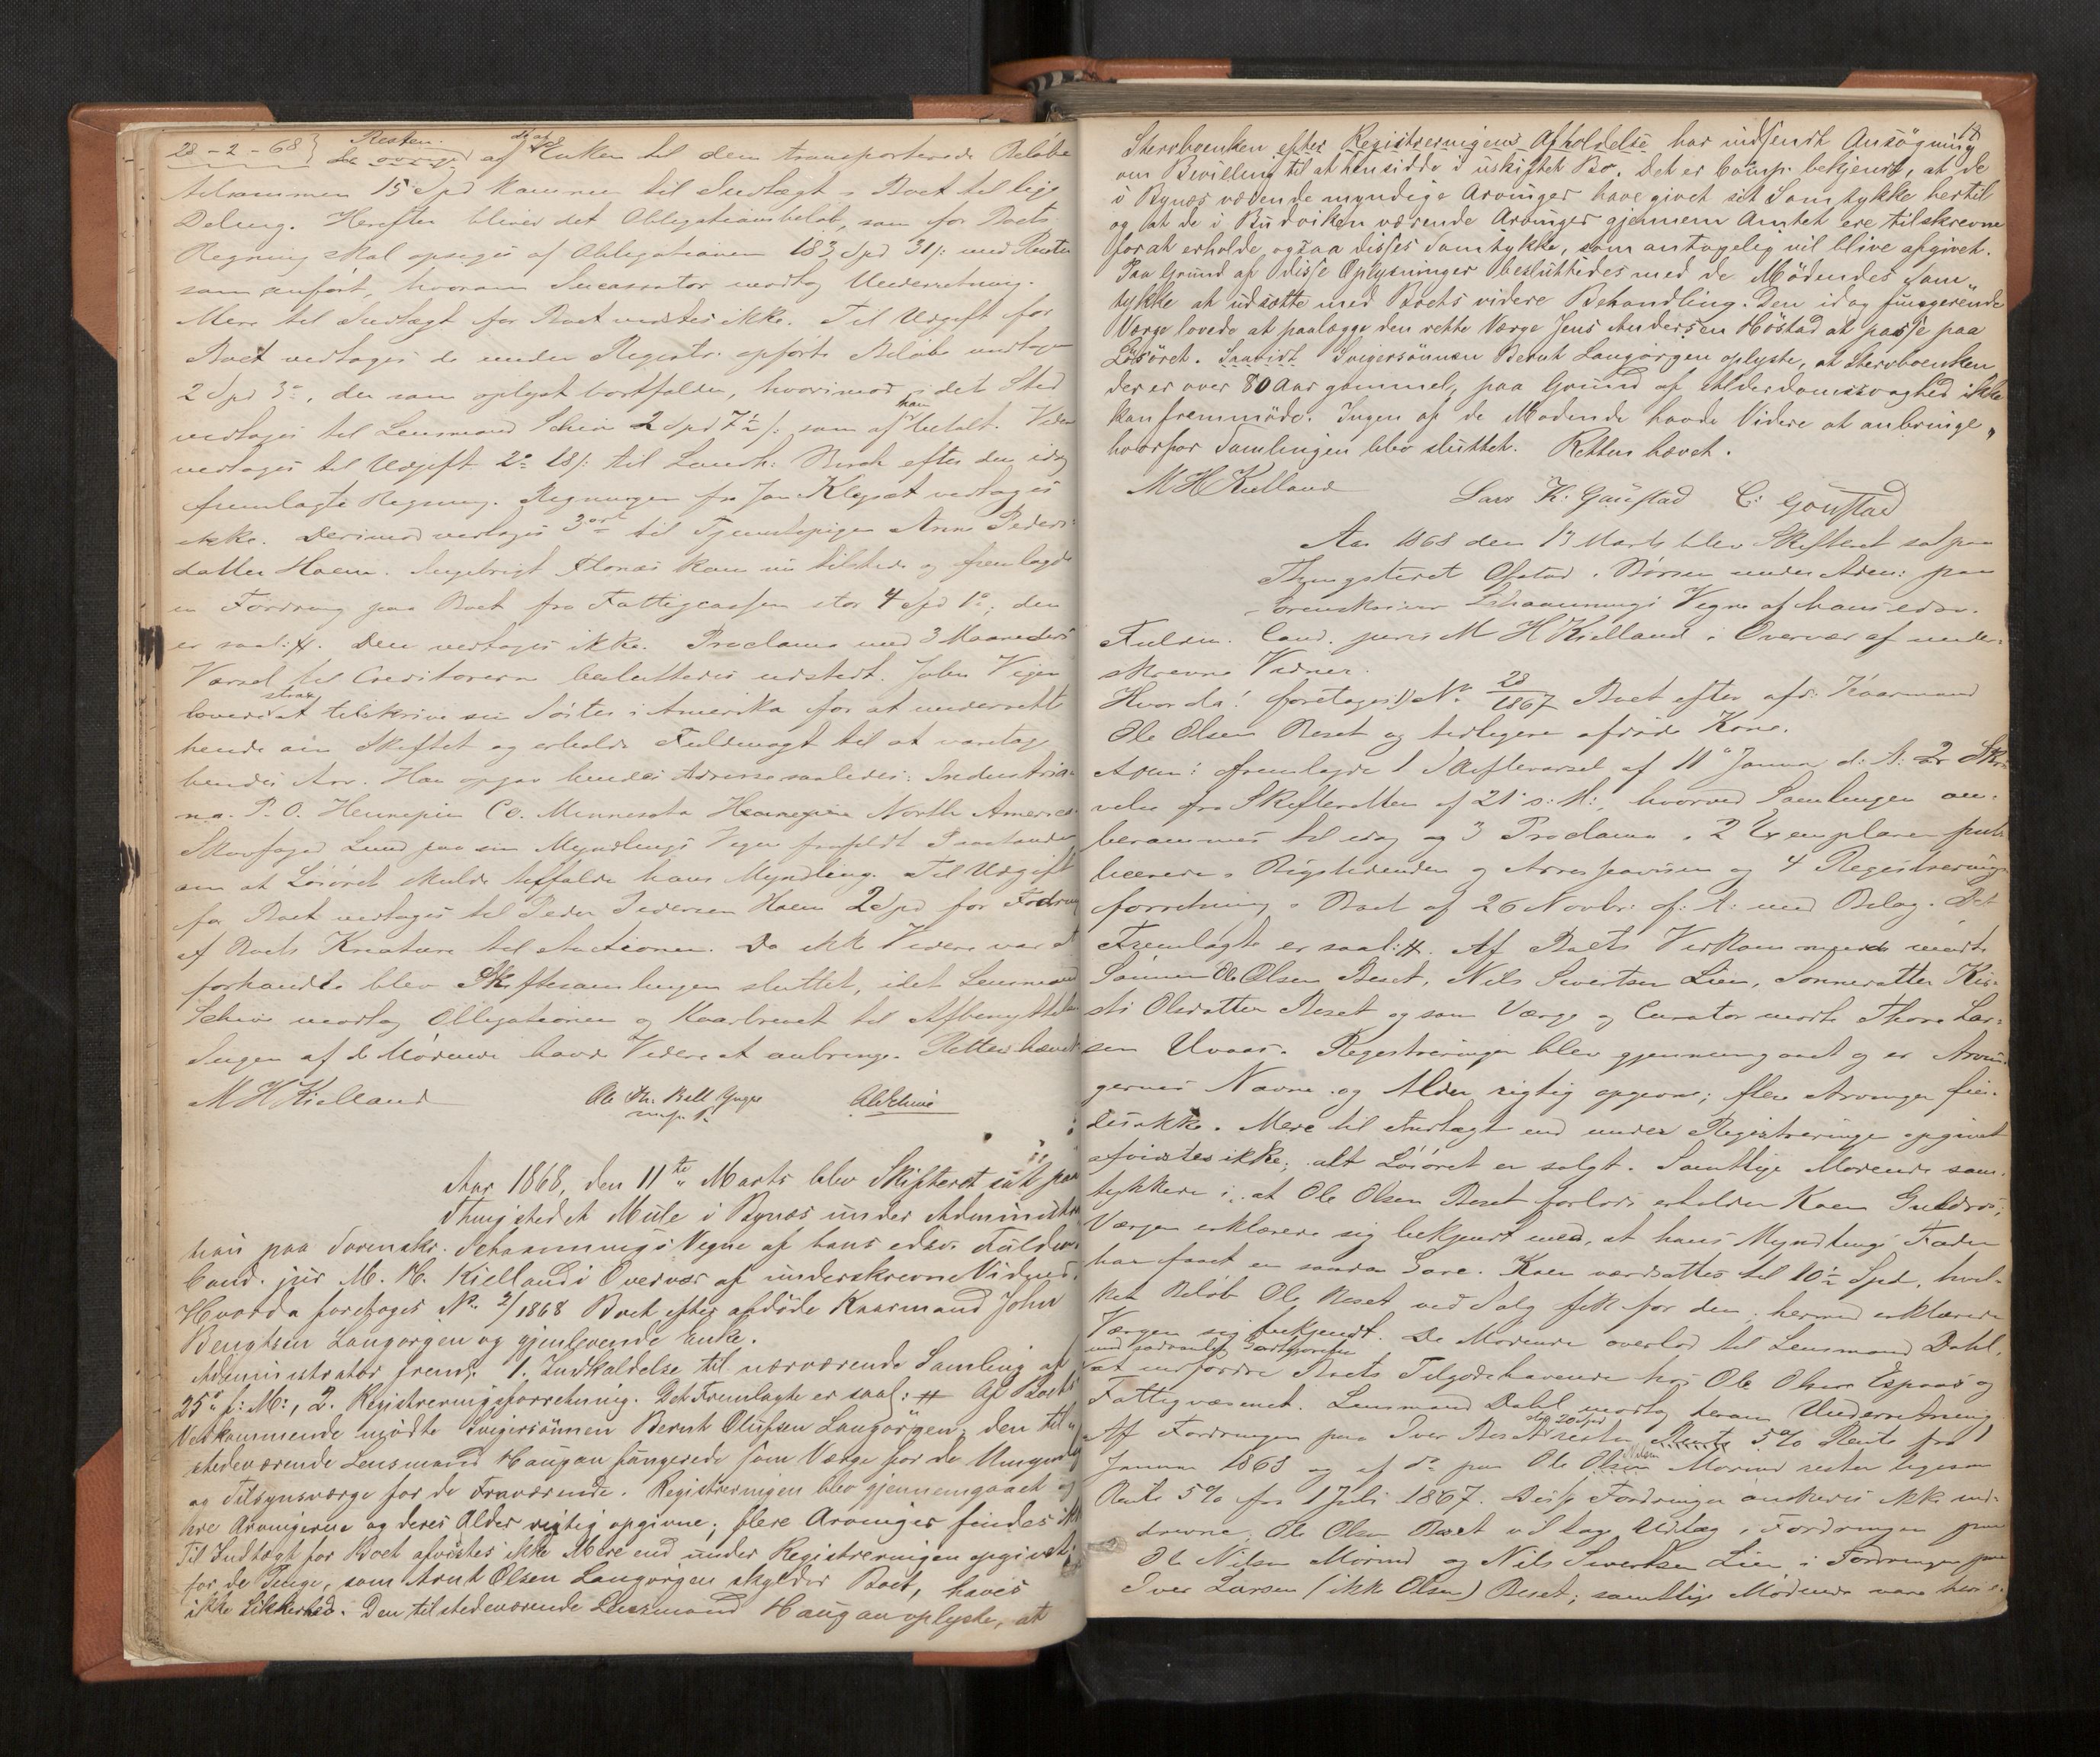 28-2-68} Resten af Enken til dem transporterede Beløbe
tilsammen 15 Spd kommer til Indtægt i Boet til lige
Deling. Herefter bliver det Obligationsbeløb, som for Boets
Regning skal opsiges af Obligationen 183 Spd 31/: med Renter
som anført, hvorom Incassator modtog Underretning.
Mere til Indtægt for Boet vidstes ikke. Til Udgift for
Boet vedtoges de under Registr. opførte Beløbe undtagen
2 Spd 3°, der som oplyst bortfalder, hvorimod i det Sted
vedtages til Lensmand Schive 2 Spd 7½/: som af ham betalt. Videre
vedtages til Udgift 2° 18/: til Landh: Birch efter den idag
fremlagte Regning. Regningen fra Jon Klepsæt vedtages
ikke. Derimod vedtages 3 ort til Tjenestepigen Anne Peders-
datter Hoem. Ingebrigt kom nu tilstede og fremlagde
en Fordring paa Boet fra Fattigcassen stor 4 Spd 1°; den
er saal: #. Den vedtages ikke. Proclama med 3 Maaneders
Varsel til Creditorerne besluttedes udstedt. John Vigen
lovede strax at tilskrive sin Søster i Amerika for at underrette
hende om Skiftet og erholde Fuldmagt til at varetage
hendes Arv. Han opgav hendes Adresse saaledes: Industria-
na. P. O. Hennepin Co. Minnesota North America.
Skovfoged Lund paa sin Myndlings Vegne Paastand
om at Løsøret skulde tilfalde hans Myndling. Til Udgift
for Boet vedtages til Peder Pedersen Hoem 2 Spd for Fodring
af Boets Kreature til Auctionen. Da ikke Videre var at
forhandle blev Skiftesamlingen sluttet, idet Lensmand
Schive modtog Obligationen og Kaarbrevet til Afbenyttelse
Ingen af de Mødende havde Videre at anbringe. Retten hævet
M H Kielland Ole Chr. Bell ASchive
Aar 1868, den 11te Marts blev Skifteret sat paa
Thingstedet Mule i Bynæs under Administra-
tion paa Sorenskr. Schaannings Vegne af hans edsv. Fuldm.
Cand. jur M. H. Kielland i Overvær af underskrevne Vidner.
Hvorda foretoges No 2/1868 Boet efter afdøde Kaarmand John
Bengtsen Langørgen og gjenlevende Enke.
Administrator freml. 1. Indkaldelse til nærværende Samling af
25° f: M:, 2. Registreringsforretning. Det Fremlagte er saal: # Af Boets
Vedkommende mødte Svigersønnen Bernt Olufsen Langørgen; den til-
stedeværende Lensmand Haugan fungerede som Værge for de Umyndige
og Tilsynsværge for de Fraværende. Registreringen blev gjennemgaaet og
ere Arvingerne og deres Alder rigtig opgivne; flere Arvinger findes ikke
Til Indtægt for Boet afvistes ikke Mere end under Registreringen opgivet;
for de Penge, som Arnt Olsen Langørgen skylder Boet, haves
ikke Sikkerhed. Den tilstedeværende Lensmand Haugan oplyste, at
18
Stervboenken efter Registreringens Afholdelse har indsendt Ansøgning
om Bevilling til at hensidde i uskiftet Bo. Det er Comp. bekjendt, at de
i Bynæs værende myndige Arvinger have givet sit Samtykke hertil
og at de i Budviken værende Arvinger gjennem Amtet ere tilskrevne
for at erholde ogsaa disses Samtykke, som antagelig vil blive afgivet.
Paa Grund af disse Oplysninger besluttedes med de Mødendes Sam-
tykke at udsætte med Boets videre Behandling. Den idag fungerende
Værge lovede at paalægge den rette Værge Jens Andersen Høstad at passe paa
Løsøret. Svigersønnen Bernt Langørgen oplyste, at Stervboenken
der er over 80 Aar gammel, paa Grund af Alderdomssvaghed ikke
kan fremmøde. Ingen af de Mødende havde Videre at anbringe,
hvorfor Samlingen blev sluttet. Retten hævet.
M H Kielland Lars K: Gaustad C: Goustad
Aar 1868 den 13 Marts blev Skifteret sat paa
Thingstedet Ofstad i Børsen under Adm: paa
Sorenskriver Schaannings Vegne af hans edsv.
Fuldm. Cand. juris M H Kielland i Overvær af under-
skrevne Vidner.
Hvorda: foretoges 1) No 28/1867 Boet efter afd: Kaarmand
Ole Olsen Reset og tidligere afdøde Kone.
Adm: fremlagde 1 Skiftevarsel af 11° Januar d: A: 2 Skri-
velse fra Skifteretten af 21° s: M:, hvorved Samlingen om-
berammes til idag og 3 Proclama i 2 Exemplarer pub-
licerede i Rigstidenden og Adresseavisen og 4 Registrerings-
forretning i Boet af 26 Novbr: f: A: med Bilag. Det
Fremlagte er saal: #. Af Boets Vedkommende mødte
Sønnen Ole Olsen Reset, Nils Sivertsen Lien, Sønnedatter Kir-
sti Olsdatter Reset og som Værge og Curator mødte Thore Lar-
sen Uvaas. Registreringen blev gjennemgaaet og er Arvin-
gernes Navne og Alder rigtig opgivne; flere Arvinger fin-
des ikke. Mere til Indtægt end under Registreringen opgivet
afvistes ikke; alt Løsøret er solgt. Samtlige Mødende sam-
tykkede i at Ole Olsen Reset forlods erholder Koen Guldros;
Værgen erklærede sig bekjendt med, at hans Myndlings Fader
har faaet en saadan Gave. Koen værdsattes til 10½ Spd, hvil-
ket Beløb Ole Reset ved Salg fik for den; hermed erklærede
Værgen sig bekjendt. De Mødende overlod til Lensmand Dahl,
at indfordre Boets Tilgodehavende hos Ole Olsen Espaas og
Fattigvæsenet. Lensmand Dahl modtog herom Underretning
Af Fordringen paa Iver Reset stor 20 Spd rester 5% Rente fra 1
Januar 1868 og af do paa Ole Nilsen Mørind rester ligesom
Rente 5% fra 1 Juli 1867. Disse Fordringer ønskedes ikke ind-
drevne; Ole Olsen Reset vil tage Udlæg i Fordringen paa
Ole Nilsen Mørind og Nils Sivertsen Lien i Fordringen paa
Iver Larsen (ikke Olsen) Reset; samtlige Mødende vare her-